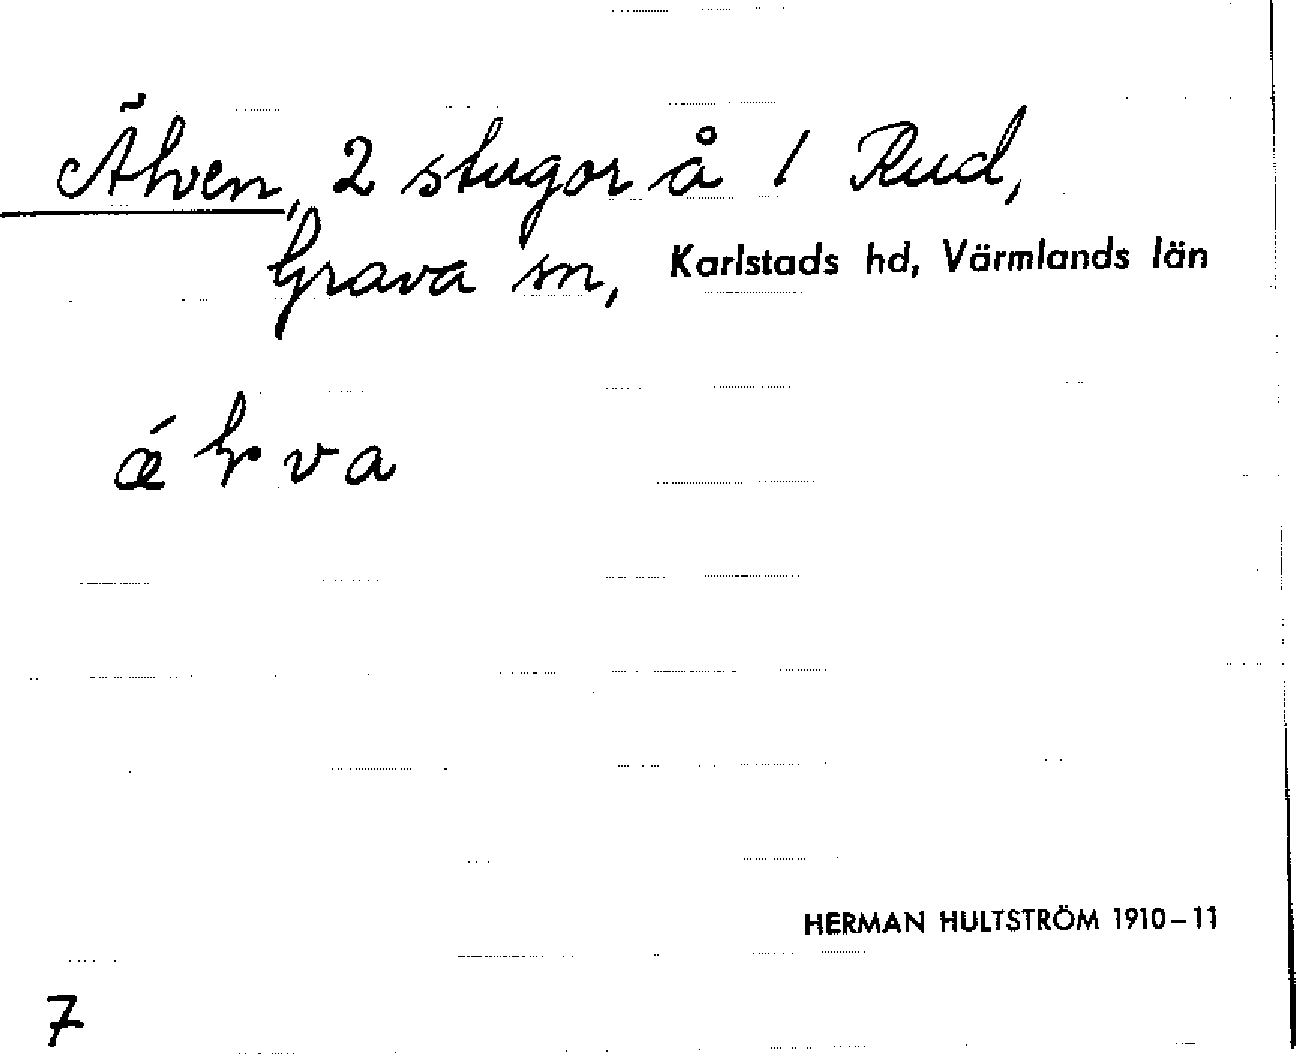 Älven, 2 stugor å 1 Rud,
Grava sn, Karlstads hd, Värmlands län
ǽ l v a
HERMAN HULTSTRÖM 1910–11
7